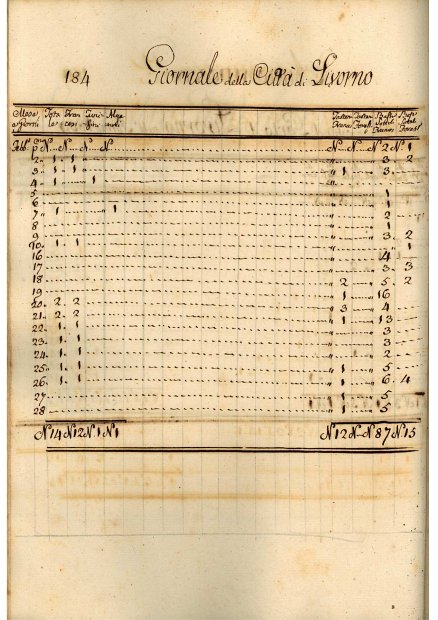 184 Giornale della Città di Livorno
Mese e giorni Tota le Fran cesi
Febb.º p.º N.º N.º N.º N.º N.º N.º N.º 2 N.º 1
2 1 1 3 2
3 1 1 1 3
4 1 1
5 1
6 1
7 1 1 2
8 1
9 3 2
10 1 1 1
16 4
17 3 3
18 2 5 2
19 1 16
20 2 2 3 4
21 2 2 1 13
22 1 1 3
23 1 1 3
24 1 1 2
25 1 1 1 5
26 1 1 1 6 4
27 1 5
28 1 5
N.º 14 N.º 12 N.º 1 N.º 1 N.º 12 N.º N.º 87 N.º 15